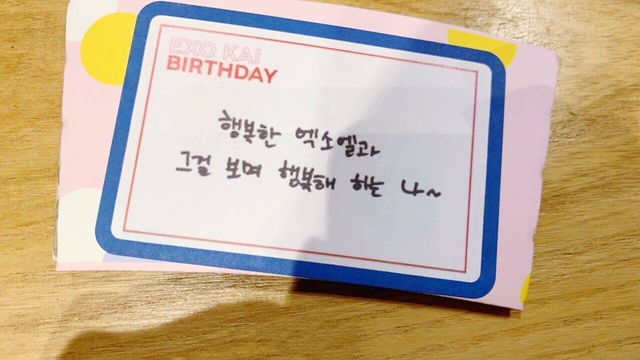 EXO KAI
BIRTHDAY
행복한 엑소엘과
그걸 보며 행복해 하는 나~